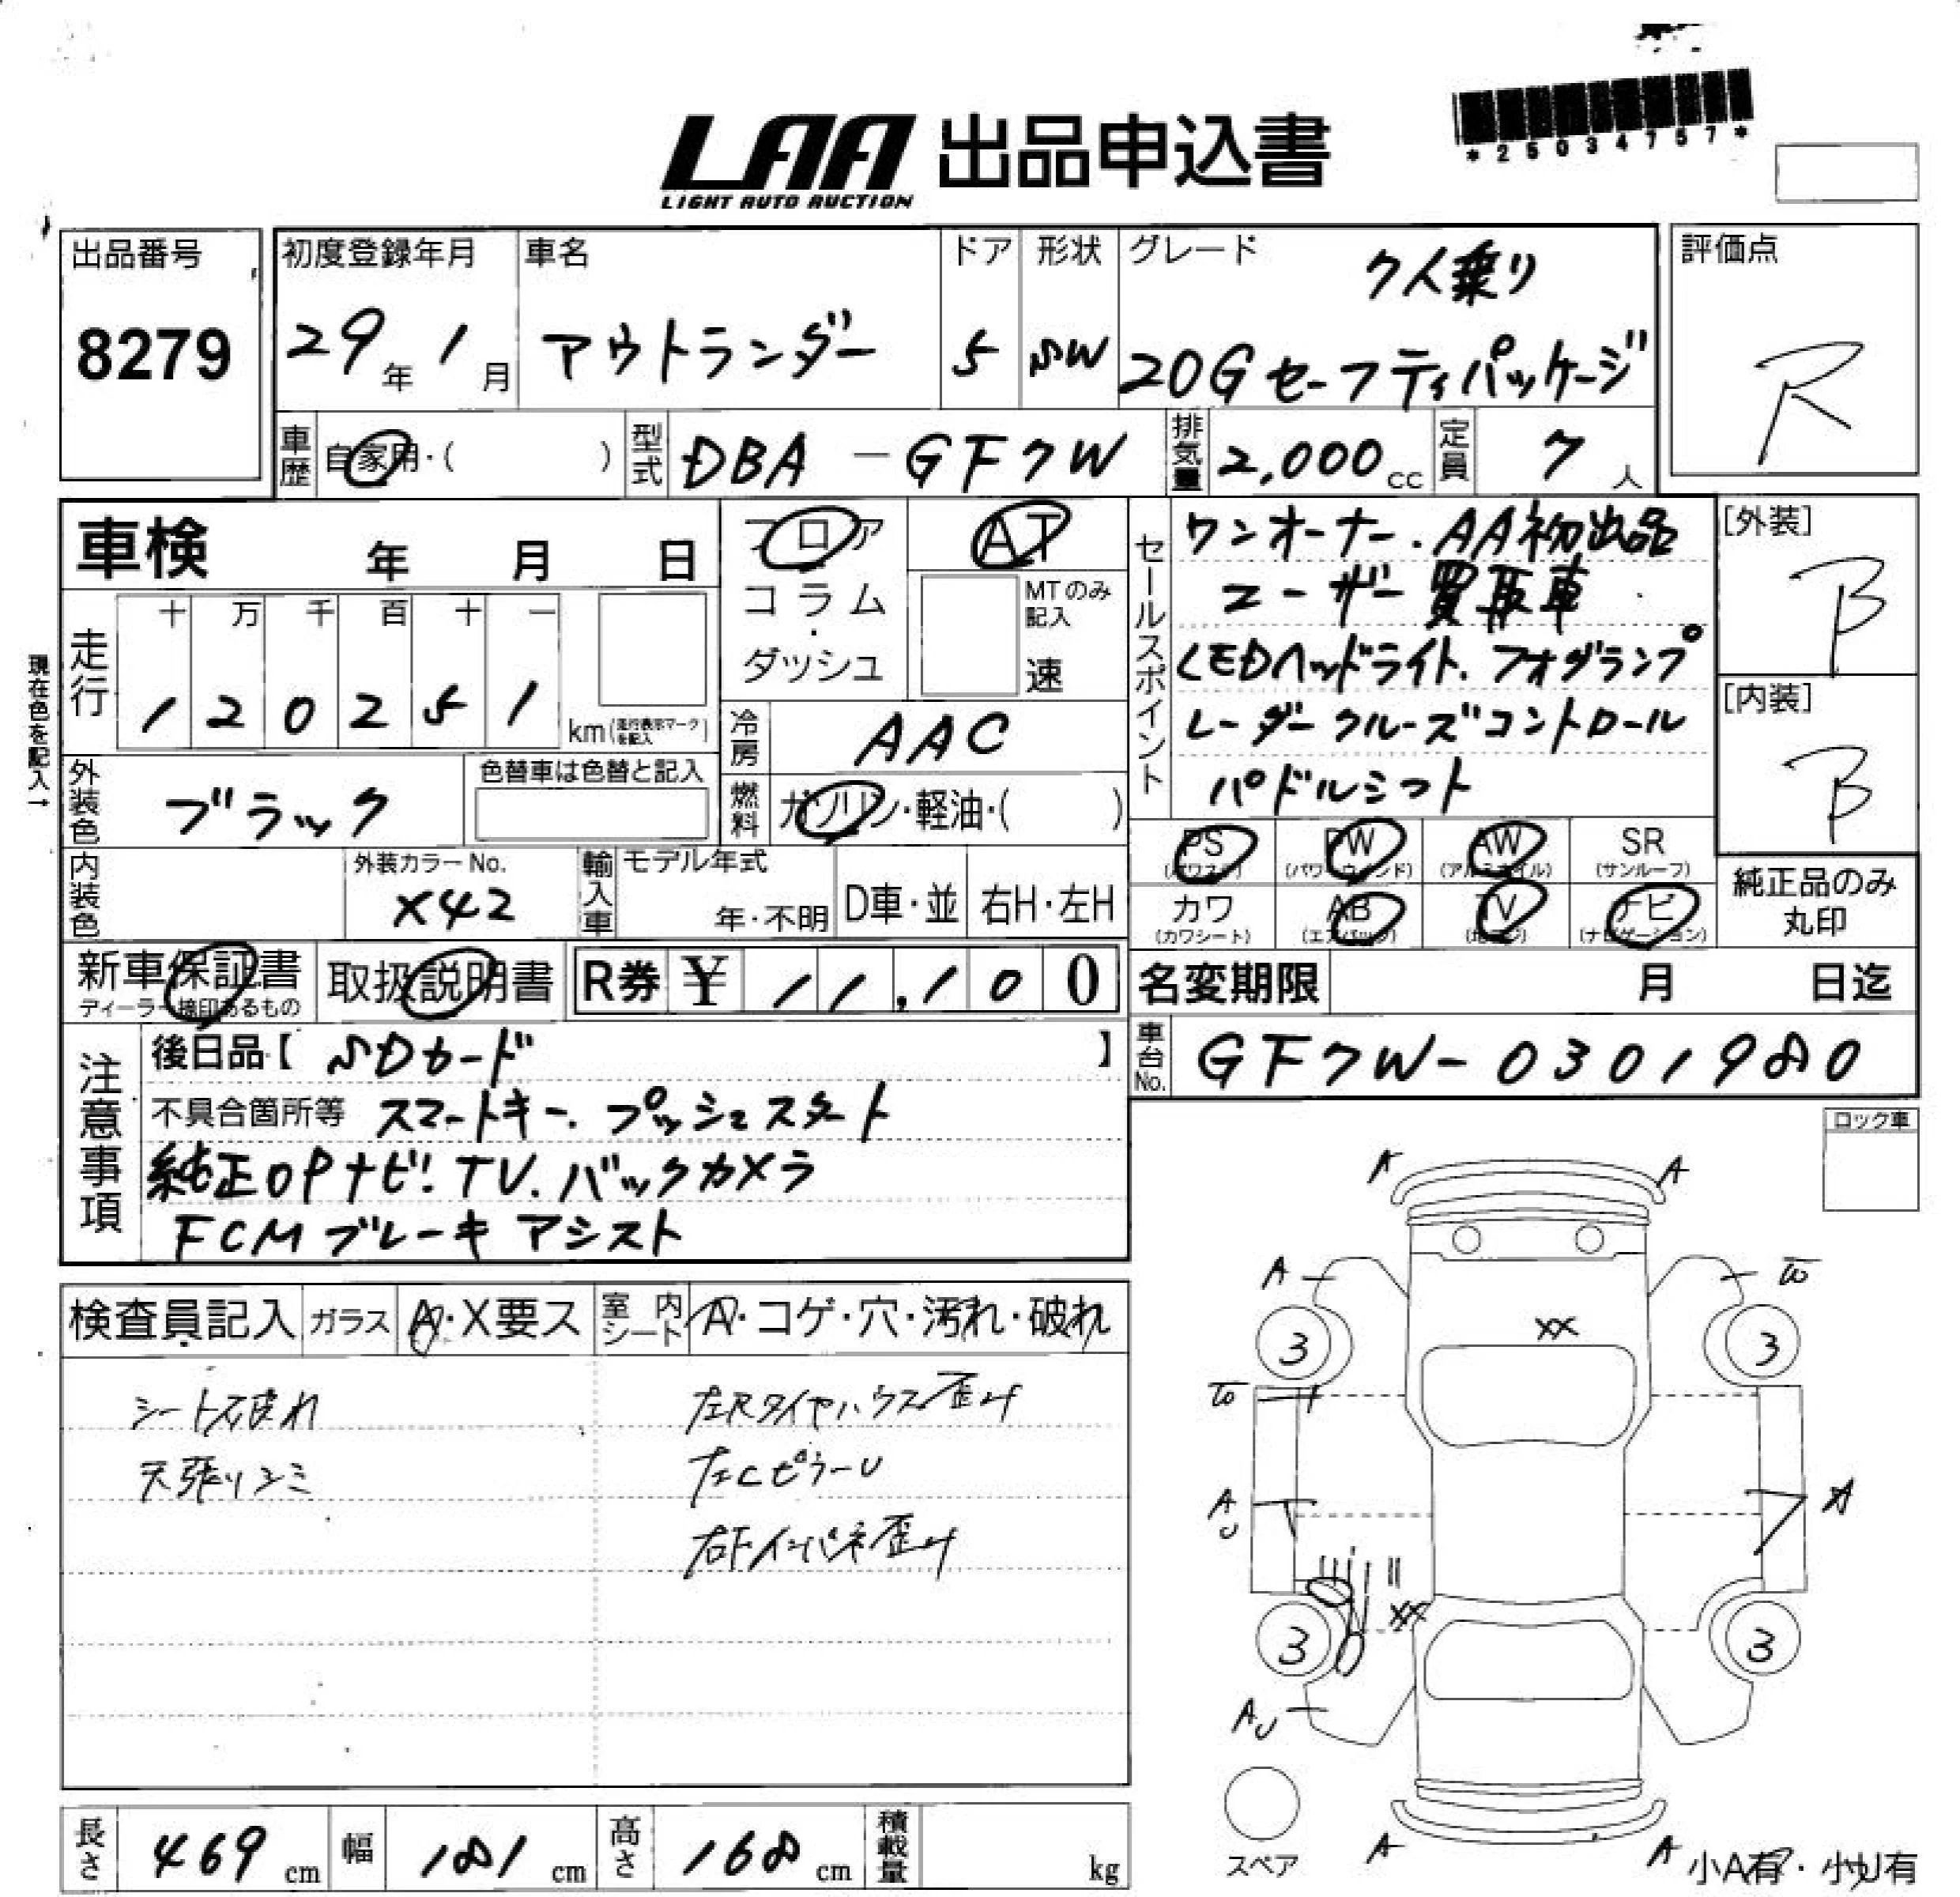 LAA 出品申込書
LIGHT AUTO AUCTION
*25034757*
出品番号
8279
初度登録年月
29年1月
車名
アウトランダー
ドア
5
形状
SW
グレード
7人乗り
20Gセーフティパッケージ
評価点
R
車歴
自家用・( )
型式
DBA-GF7W
排気量
2,000cc
定員
7人
車検 年 月 日
フロア
コラム
・
ダッシュ
AT
MTのみ
記入
速
セールスポイント
ワンオーナー.AA初出品
ユーザー買取車
LEDヘッドライト.フォグランプ
レーダークルーズコントロール
パドルシフト
[外装]
B
[内装]
B
現在色を記入→
走行
十 万 千 百 十 一
1 2 0 2 5 1
km(走行表示マークを記入)
冷房
AAC
外装色
ブラック
色替車は色替と記入
燃料
ガソリン・軽油・( )
PS (パワステ)
PW (パワーウィンド)
AW (アルミホイル)
SR (サンルーフ)
カワ (カワシート)
AB (エアバッグ)
TV (地デジ)
ナビ (ナビゲーション)
純正品のみ
丸印
内装色
外装カラーNo.
X42
輸入車
モデル年式
年・不明
D車・並
右H・左H
新車保証書
ディーラー捺印あるもの
取扱説明書
R券 ¥ 11,100
名変期限 月 日迄
車台No.
GF7W-0301980
注意事項
後日品【 SDカード 】
不具合箇所等 スマートキー.プッシュスタート
純正OPナビ!TV.バックカメラ
FCMブレーキアシスト
ロック車
検査員記入
ガラス
A・X要ス
室内シート
A・コゲ・穴・汚れ・破れ
シート破れ
天張りシミ
左Rタイヤハウス歪み
左CピラーU
右Fインパネ歪み
A A
A W
XX
3 3
W
A
U
XX
3 3
AU
スペア
A A
小A有・小U有
長さ 469cm
幅 181cm
高さ 168cm
積載量 kg